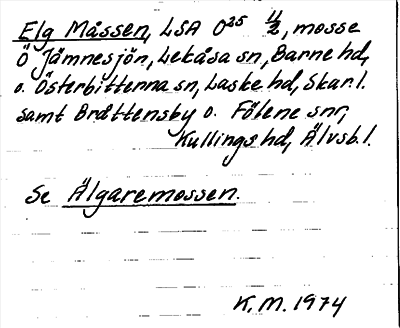 Elg Måssen, LSA O25 11/2, mosse
Ö Jämnesjön, Lekåsa sn, Barne hd,
o. Österbitterna sn, Laske hd, Skar.l.
samt Bråttensby o. Fölene snr,
Kullings hd, Älvsb.l.
Se Älgaremossen.
K.M. 1974